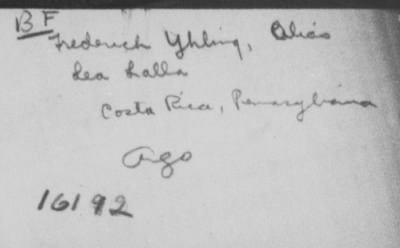 BF
Frederich Yhling, Alias
Lea Lalla
Costa Rica, Pennsylvania
Ago
16192